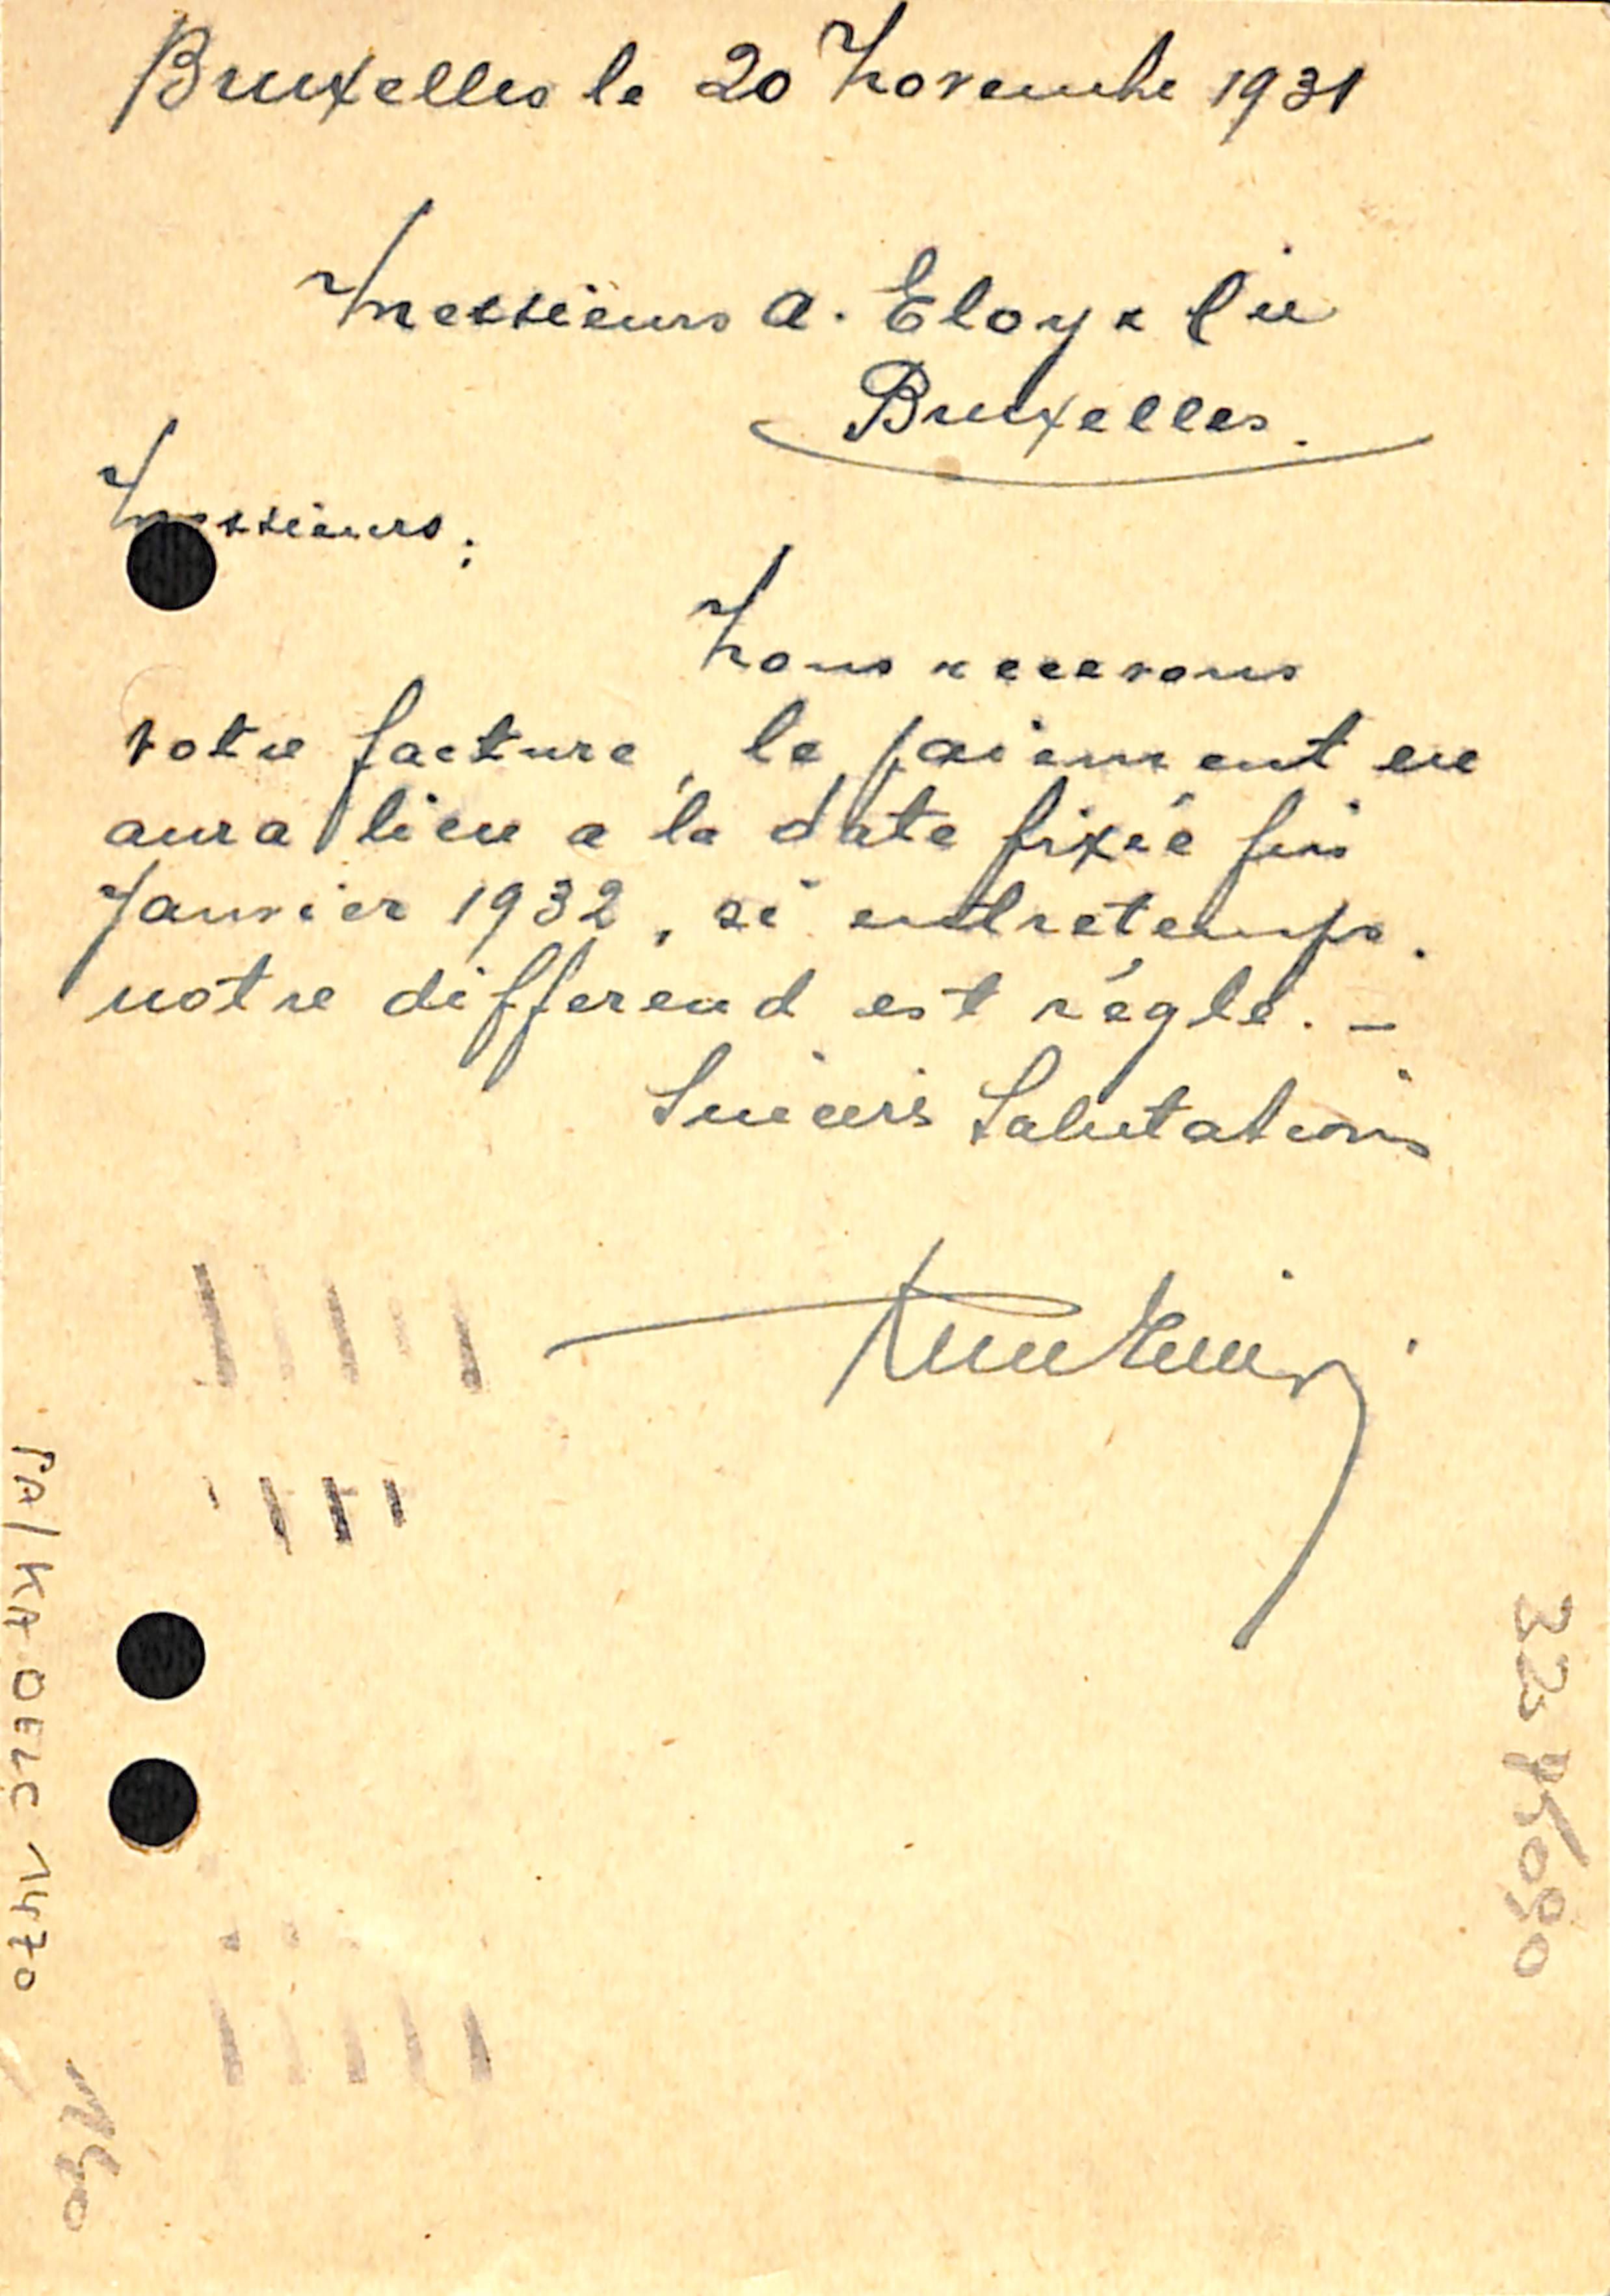 Bruxelles le 20 Novembre 1931
Messieurs A. Eloy & Cie
Bruxelles.
Messieurs;
Nous recevons
votre facture, le paiement en
aura lieu a la date fixée fin
Janvier 1932, si entretemps.
notre differend est réglé. -
Sincers Salutations
PA/KA OEZC 1470